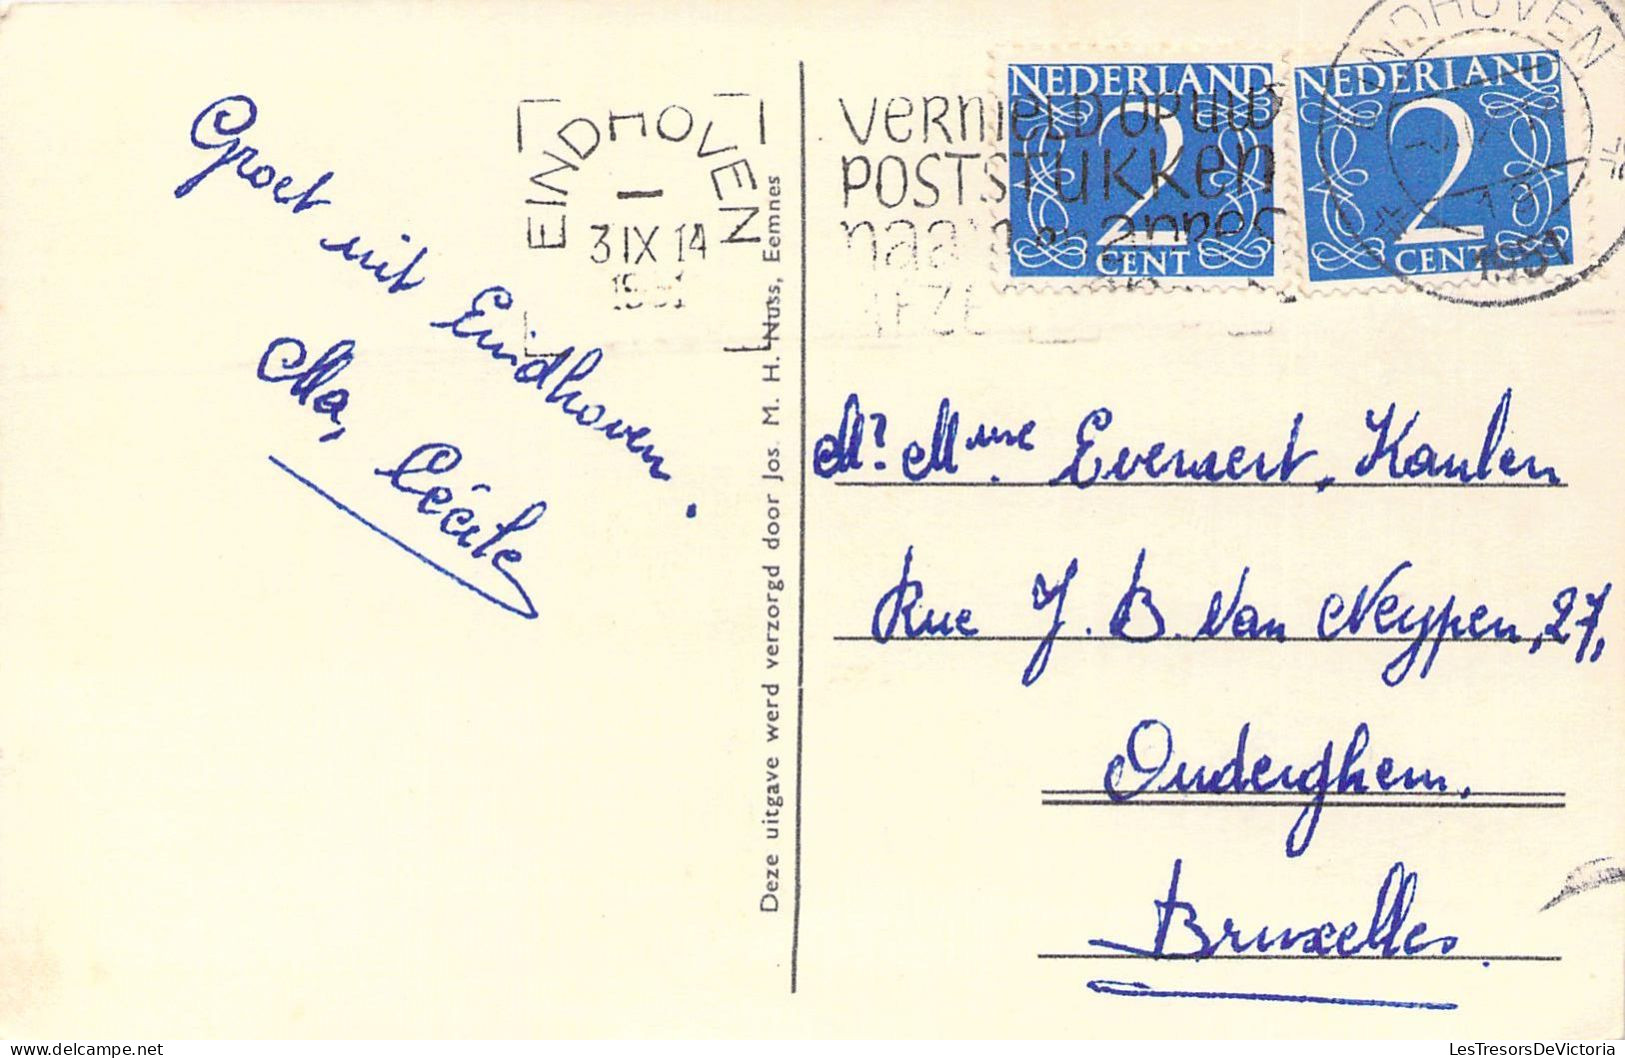 Groet uit Eindhoven.
Ma, Cécile
EINDHOVEN
3 IX 14
1951
Deze uitgave werd verzorgd door Jos. M. H. Nuss, Eemnes
VERMELD OP UW
POSTSTUKKEN
NEDERLAND
2
CENT
NEDERLAND
2
CENT
EINDHOVEN
1951
Mr. Mme Everaert, Kaulen
Rue J. B. Van Neypen, 27,
Ouderghem.
Bruxelles.
LesTresorsDeVictoria
delcampe.net